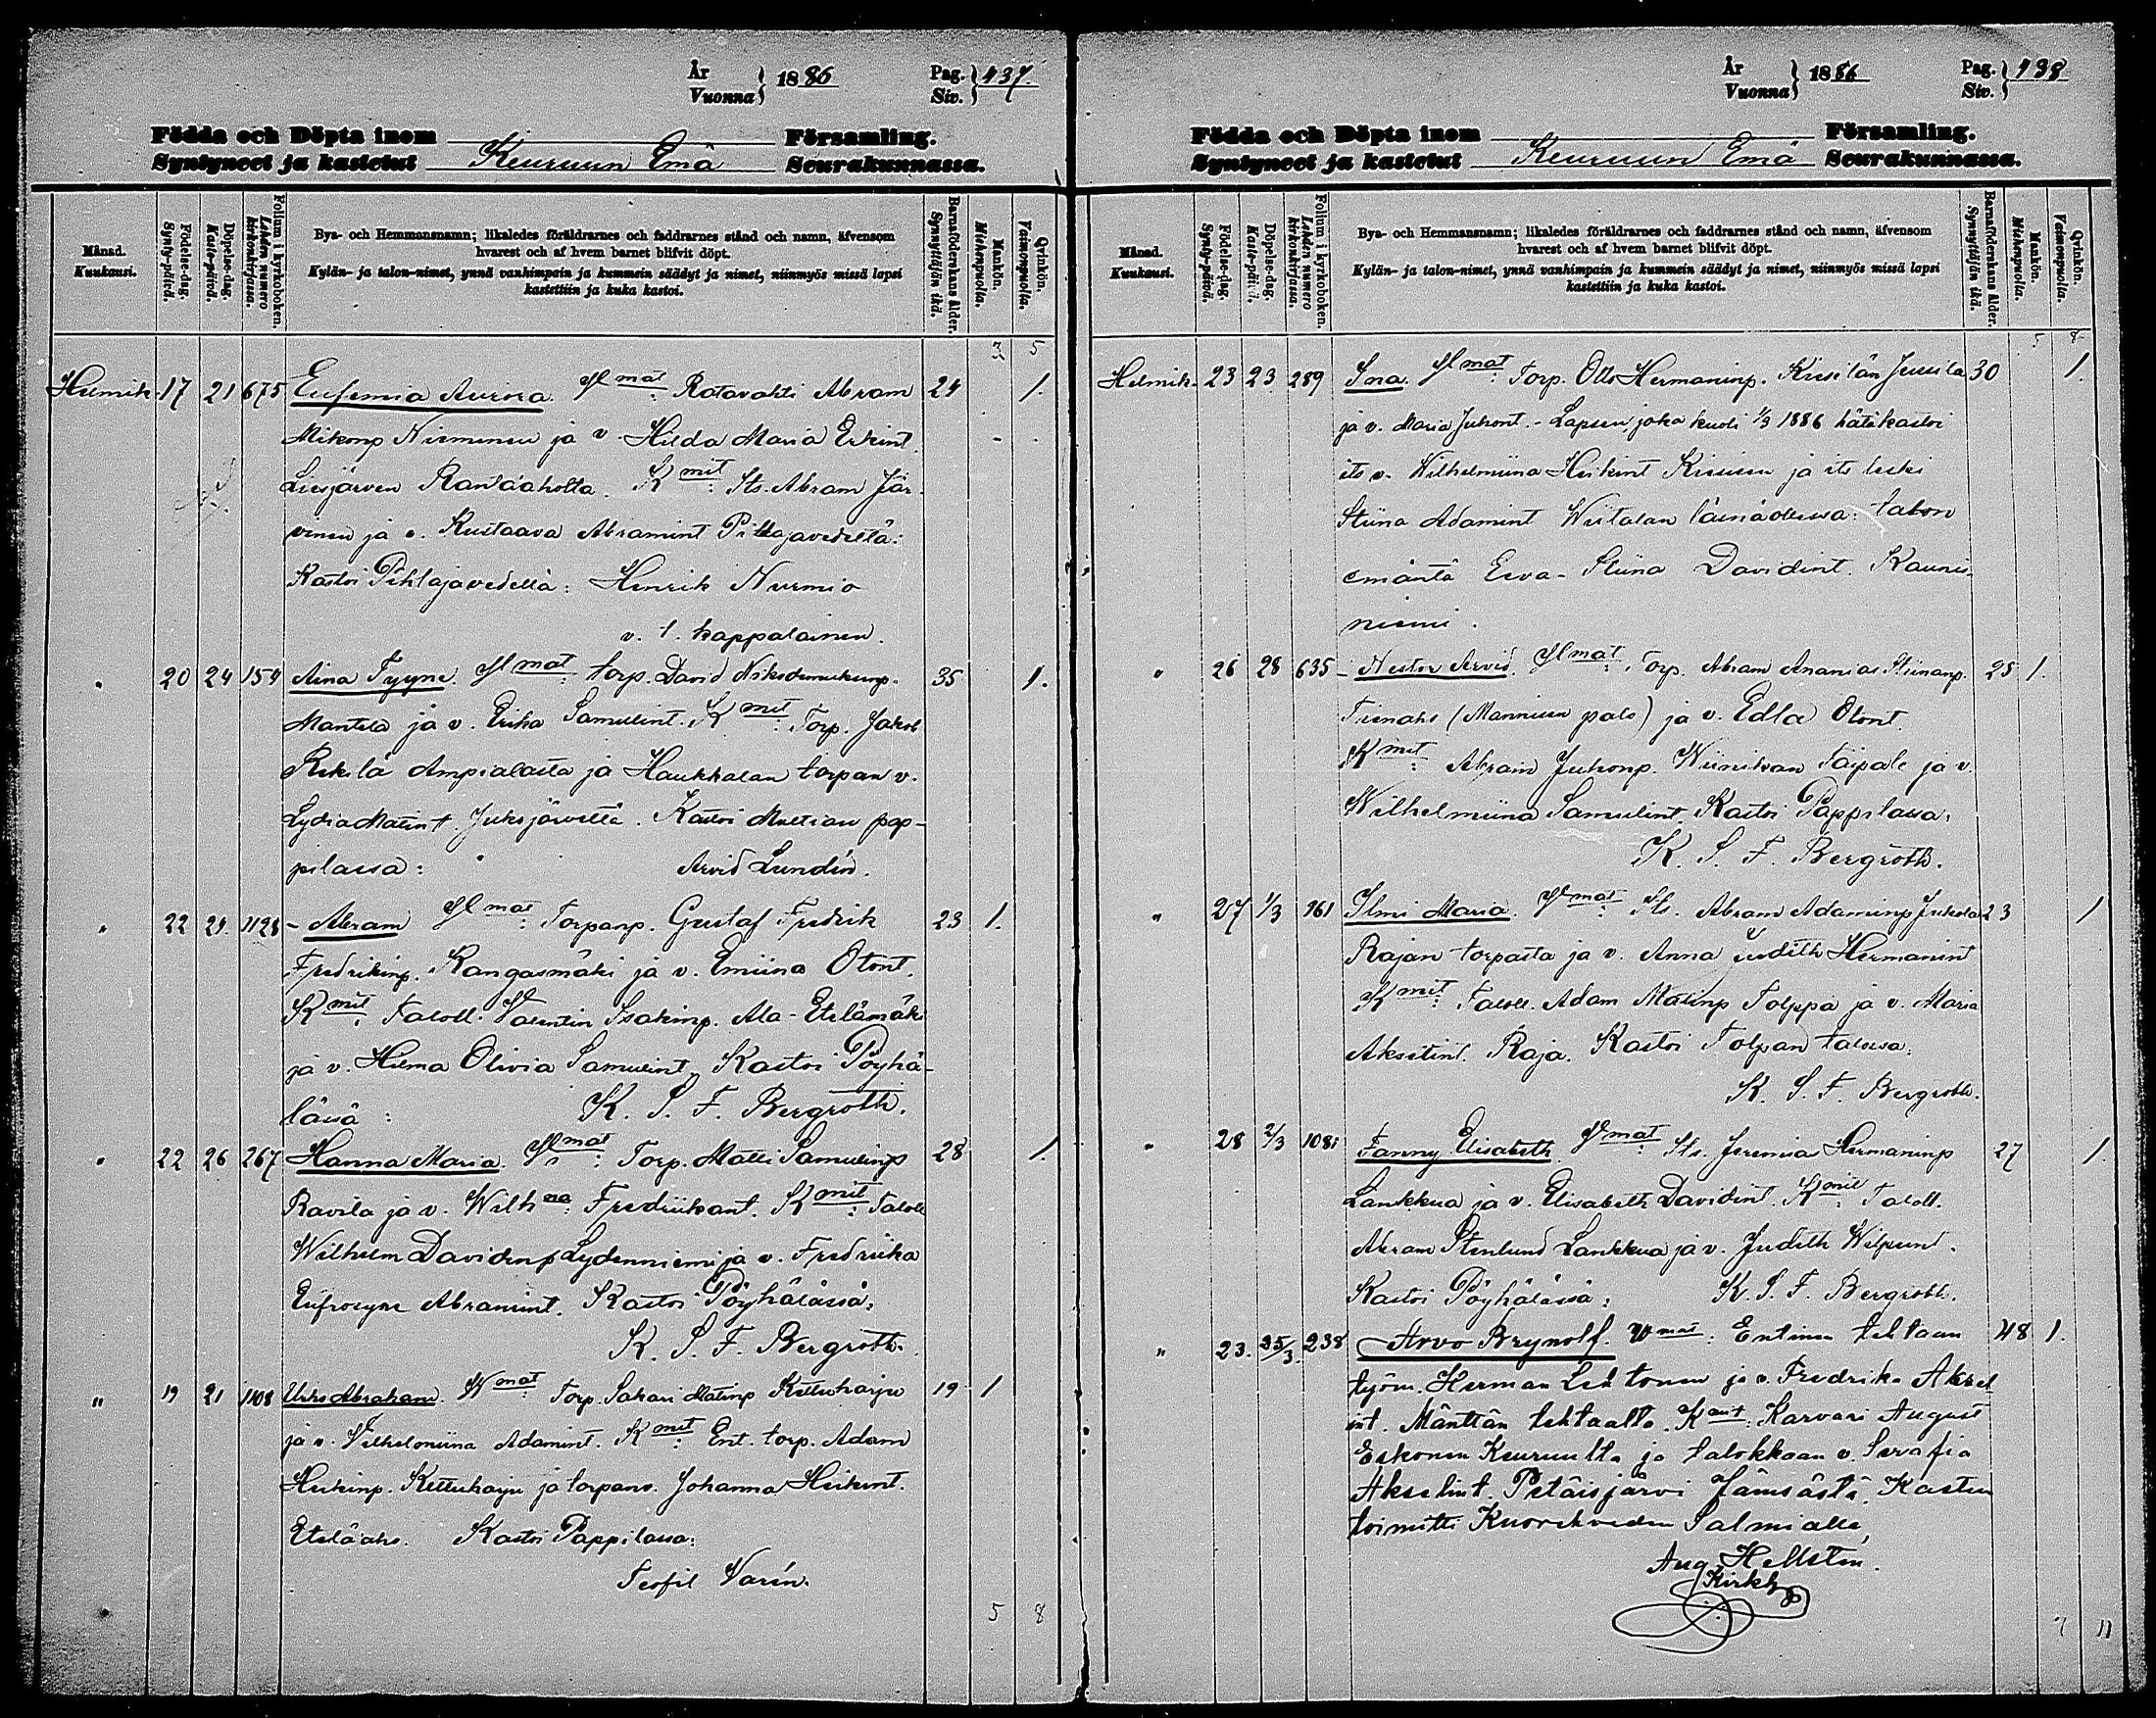 År
Vuonna } 1886
Pag.
Siv. } 437.
Födda och Döpta inom Församling.
Syntyneet ja kastetut Keuruun Emä Seurakunnassa.
Månad.
Kuukausi.
Födelse-dag.
Synty-päivä.
Döpelse-dag.
Kaste-päivä.
Folium i kyrkoboken.
Lehden numero kirkonkirjassa.
Bya- och Hemmansnamn; likaledes föräldrarnes och faddrarnes stånd och namn, äfvensom
hvarest och af hvem barnet blifvit döpt.
Kylän- ja talon-nimet, ynnä vanhimpain ja kummein säädyt ja nimet, niinmyös missä lapsi
kastettiin ja kuka kastoi.
Barnaföderskans ålder.
Synnyttäjän ikä.
Mankön.
Miehenpuolta.
Qvinkön.
Vaimonpuolta.
3 5
Helmik. 17 21 675 Eufemia Aurora. Vmat: Ratavahti Abram 24 1.
Mikonp Nieminen ja v. Hilda Maria Erkint.
Liesjärven Rantaaholta. Kmit: Its. Abram Jär-
vinen ja v. Kustaava Abramint Pihlajavedeltä:
Kastoi Pihlajavedellä: Henrik Nurmio
v. t. kappalainen.
" 20 24 154 Aina Tyyne. Vmat: torp. David Nikodemukenp. 35 1.
Mantila ja v. Erika Samulint. Kmit: Torp. Jakob
Rekilä Ampialasta ja Haukkalan torpan v.
Lydia Matint. Jukojärveltä. Kastoi Multian pap-
pilassa: Arvid Lundén.
" 22 24. 1128 - Abram Vmat: Torpanp. Gustaf Fredrik 23 1.
Fredrikinp. Kangasmäki ja v. Emiina Otont.
Kmit: Taloll. Valentin Isakinp. Ala-Etelämäki
ja v. Hilma Olivia Samulint. Kastoi Pöyhö-
lässä: K. S. F. Bergroth.
" 22 26 267 Hanna Maria. Vmat: Torp. Matti Samulinp 28 1.
Ravila ja v. Wilhna: Fredriikant. Kmit: Taloll
Wilhelm Davidinp Lydenniemi ja v. Fredriika
Eufrosyne Abramint. Kastoi Pöyhölässä:
K. S. F. Bergroth.
" 19 21 1108 Urho Abraham. Vmat: Torp. Sakari Matinp Kettuharju 19 1
ja v. Vilhelmiina Adamint. Kmit: Ent. torp. Adam
Heikinp. Kettuharju ja torpanv. Johanna Heikint.
Eteläaho. Kastoi Pappilassa:
Teofil Varén.
5 8
År
Vuonna } 1886
Pag.
Siv. } 438
Födda och Döpta inom Församling.
Syntyneet ja kastetut Keuruun Emä Seurakunnassa.
Månad.
Kuukausi.
Födelse-dag.
Synty-päivä.
Döpelse-dag.
Kaste-päivä.
Folium i kyrkoboken.
Lehden numero kirkonkirjassa.
Bya- och Hemmansnamn; likaledes föräldrarnes och faddrarnes stånd och namn, äfvensom
hvarest och af hvem barnet blifvit döpt.
Kylän- ja talon-nimet, ynnä vanhimpain ja kummein säädyt ja nimet, niinmyös missä lapsi
kastettiin ja kuka kastoi.
Barnaföderskans ålder.
Synnyttäjän ikä.
Mankön.
Miehenpuolta.
Qvinkön.
Vaimonpuolta.
5 8
Helmik. 23 23 289 Ina. Vmat: Torp. Otto Hermaninp. Jussila 30 1.
ja v. Maria Juhont. - Lapsen, joka kuoli 1/3 1886 hätäkastoi
its v. Wilhelmiina Heikint ja its leski
Stiina Adamint Wiitalan läsnäollessa: talon
emäntä Eeva-Stiina Davidint. Kaunis-
niemi.
" 26 28 635 - Nestor Arvid. Vmat: Torp. Abram Ananias Stiinanp. 25 1.
(Mannisen palo) ja v. Edla Otont.
Kmit: Abram Juhonp. Taipale ja v.
Wilhelmiina Samulint. Kastoi Pappilassa:
K. S. F. Bergroth.
" 27 1/3 961 Ilmi Maria. Vmat: Its. Abram Adaminp Jukola 23 1
Rajan torpasta ja v. Anna Judith Hermanint
Kmit: Taloll. Adam Matinp Tolppa ja v. Maria
Aksitint. Raja. Kastoi Tolpan talossa:
K. S. F. Bergroth.
" 28 2/3 1081 Fanny Elisabeth. Vmat: Its. Jeremia Hermaninp 27 1.
Lankkua ja v. Elisabeth Davidint. Kmit: Taloll.
Abram Stenlund Lankkua ja v. Judith Wilpunt.
Kastoi Pöyhölässä: K. S. F. Bergroth.
" 23. 25/3. 238 Arvo Brynolf. Vmat: Entinen tehtaan 48 1.
työm. Herman Lehtonen ja v. Fredrika Aksel-
int. Mänttän tehtaalta. Kmit: Karvari August
Eskonen Keuruulta ja talokkaan v. Serafia
Akselint. Petäisjärvi Jämsästä. Kasten
toimitti Kuoreveden Salmialla,
Aug. Hellstén.
Kirkh
7 11